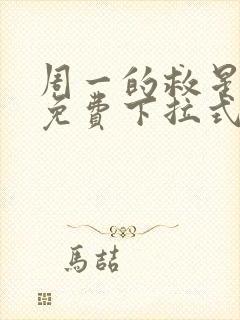 周一的救星
免费下拉式
馬喆